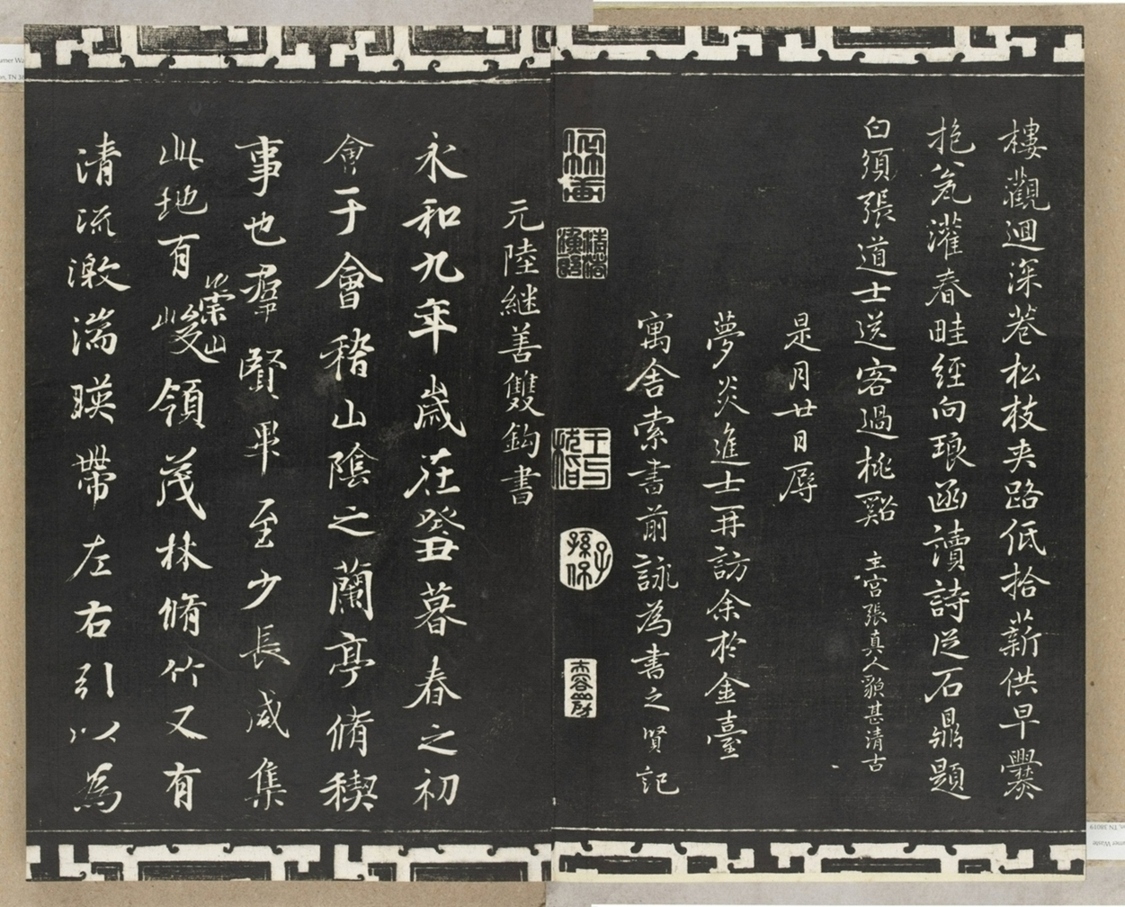 樓觀迴深巷松枝夾路低拾薪供早爨
抱瓮灌春畦經向琅函讀詩從石鼎題
白須張道士送客過桃谿 主宮張真人貌甚清古
是月廿日辱
夢炎進士再訪余於金臺
寓舍索書前詠為書之賢記
元陸継善雙鈎書
永和九年歲在癸丑暮春之初
會于會稽山陰之蘭亭脩稧
事也羣賢畢至少長咸集
此地有崇山峻領茂林脩竹又有
清流激湍暎帶左右引以為